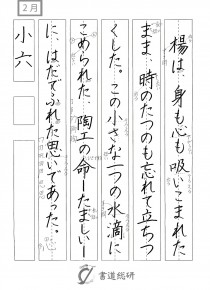 2月
楊は…身も心も吸いこまれた
まま…時のたつのも忘れて立ちつ
くした。この小さな一つの水滴に
こめられた…陶工の命—たましい—
に、はだでふれた思いであった。
小六
書道総研